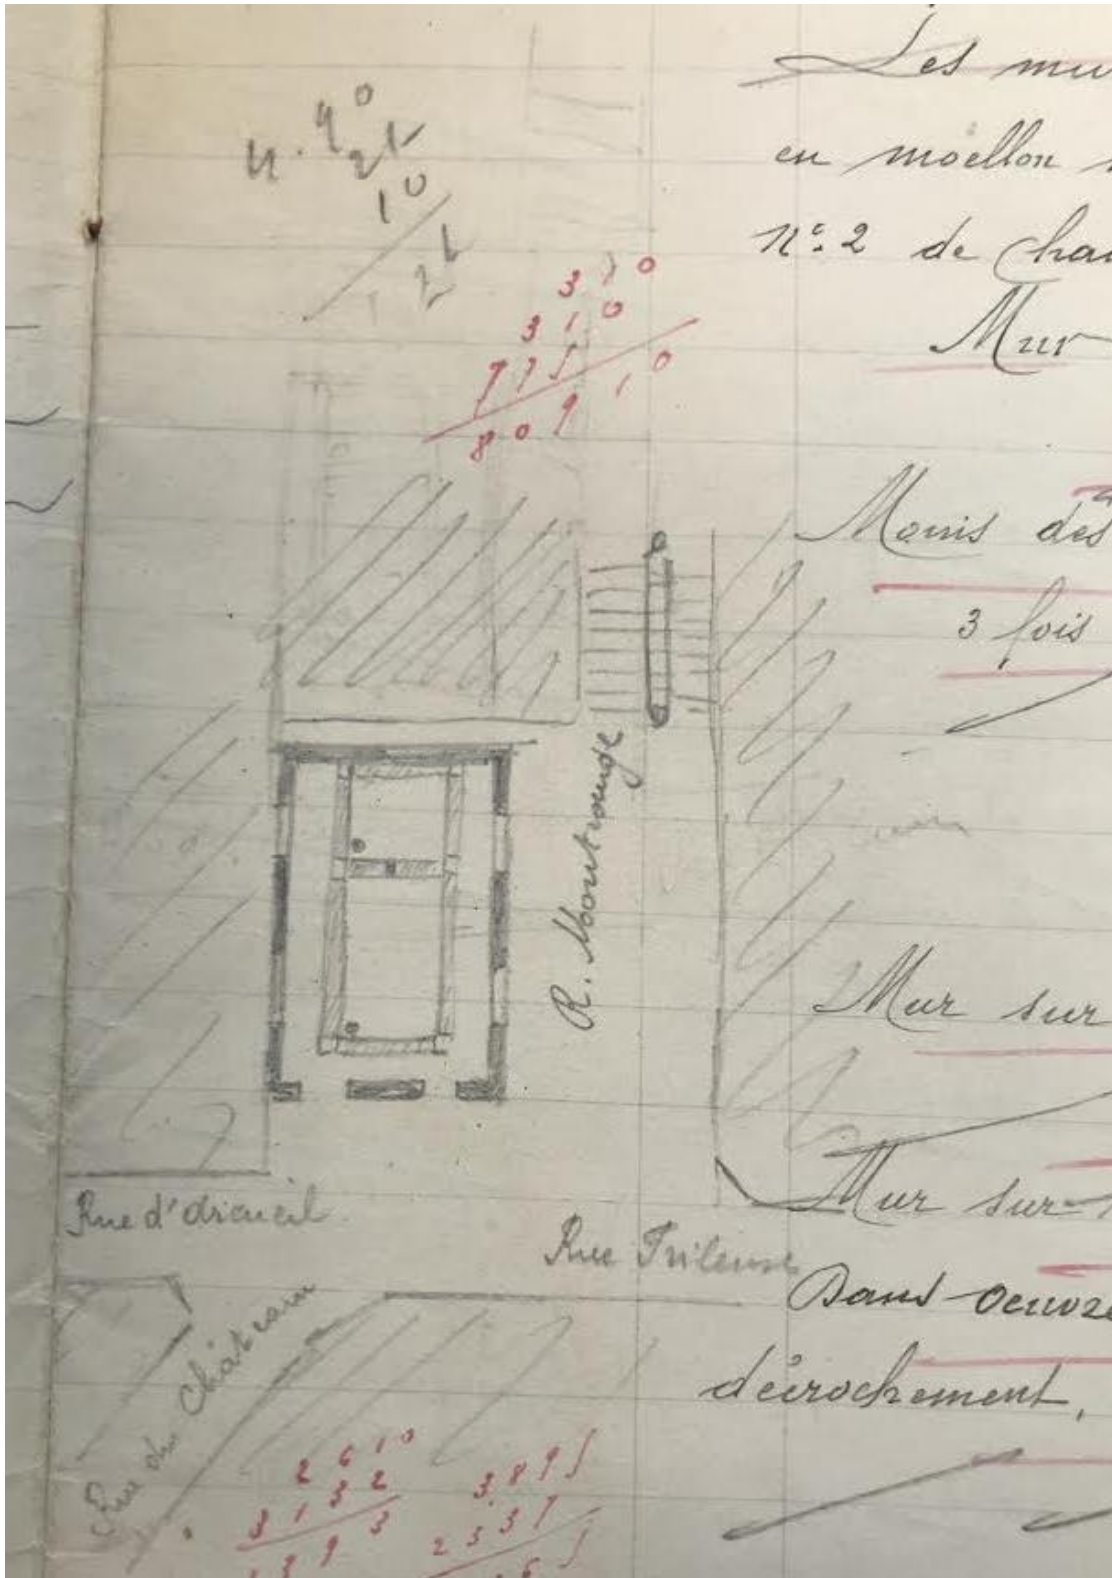 Les mu
en moellon
N° 2 de chau
Mur
Moins des
3 fois
Mur sur
Mur sur
Dans oeuvre
décrochement,
4.90
10
310
310
775
80910
R. Montrouge
Rue d'Arcueil
Rue Frileuse
Rue du Château
2610
3132
3.895
2337